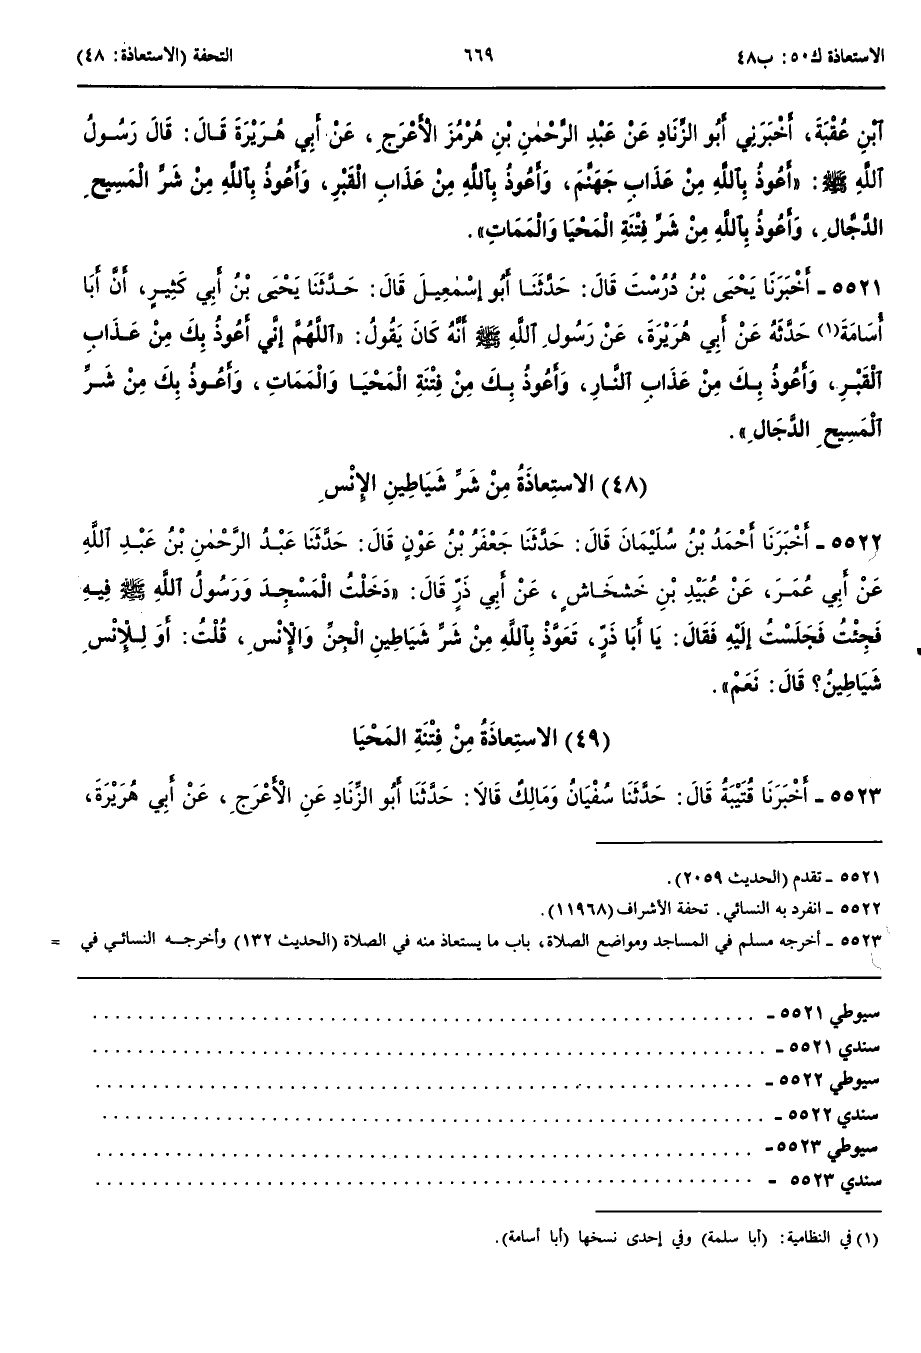 الاستعاذة ك٥٠: ب٤٨ ٦٦٩ التحفة (الاستعاذة: ٤٨)
ٱبْنِ عُقْبَةَ، أَخْبَرَنِي أَبُو الزِّنَادِ عَنْ عَبْدِ الرَّحْمٰنِ بْنِ هُرْمُزَ الْأَعْرَجِ، عَنْ أَبِي هُرَيْرَةَ قَالَ: قَالَ رَسُولُ
ٱللَّهِ ﷺ: «أَعُوذُ بِٱللَّهِ مِنْ عَذَابِ جَهَنَّمَ، وَأَعُوذُ بِٱللَّهِ مِنْ عَذَابِ الْقَبْرِ، وَأَعُوذُ بِٱللَّهِ مِنْ شَرِّ الْمَسِيحِ
الدَّجَّالِ، وَأَعُوذُ بِٱللَّهِ مِنْ شَرِّ فِتْنَةِ الْمَحْيَا وَالْمَمَاتِ».
٥٥٢١ ـ أَخْبَرَنَا يَحْيَى بْنُ دُرُسْتَ قَالَ: حَدَّثَنَا أَبُو إِسْمٰعِيلَ قَالَ: حَدَّثَنَا يَحْيَى بْنُ أَبِي كَثِيرٍ، أَنَّ أَبَا
أُسَامَةَ(١) حَدَّثَهُ عَنْ أَبِي هُرَيْرَةَ، عَنْ رَسُولِ ٱللَّهِ ﷺ أَنَّهُ كَانَ يَقُولُ: «ٱللَّهُمَّ إِنِّي أَعُوذُ بِكَ مِنْ عَذَابِ
ٱلْقَبْرِ، وَأَعُوذُ بِكَ مِنْ عَذَابِ ٱلنَّارِ، وَأَعُوذُ بِكَ مِنْ فِتْنَةِ الْمَحْيَا وَالْمَمَاتِ، وَأَعُوذُ بِكَ مِنْ شَرِّ
ٱلْمَسِيحِ الدَّجَالِ».
(٤٨) الاستِعاذَةُ مِنْ شَرِّ شَيَاطِينِ الإِنْسِ
٥٥٢٢ ـ أَخْبَرَنَا أَحْمَدُ بْنُ سُلَيْمَانَ قَالَ: حَدَّثَنَا جَعْفَرُ بْنُ عَوْنٍ قَالَ: حَدَّثَنَا عَبْدُ الرَّحْمٰنِ بْنُ عَبْدِ ٱللَّهِ
عَنْ أَبِي عُمَرَ، عَنْ عُبَيْدِ بْنِ خَشْخَاشٍ، عَنْ أَبِي ذَرٍّ قَالَ: «دَخَلْتُ الْمَسْجِدَ وَرَسُولُ ٱللَّهِ ﷺ فِيهِ
فَجِئْتُ فَجَلَسْتُ إِلَيْهِ فَقَالَ: يَا أَبَا ذَرٍّ، تَعَوَّذْ بِٱللَّهِ مِنْ شَرِّ شَيَاطِينِ الْجِنِّ وَالْإِنْسِ، قُلْتُ: أَوَ لِلْإِنْسِ
شَيَاطِينُ؟ قَالَ: نَعَمْ».
(٤٩) الاستِعاذَةُ مِنْ فِتْنَةِ المَحْيَا
٥٥٢٣ ـ أَخْبَرَنَا قُتَيْبَةُ قَالَ: حَدَّثَنَا سُفْيَانُ وَمَالِكٌ قَالَا: حَدَّثَنَا أَبُو الزِّنَادِ عَنِ الْأَعْرَجِ، عَنْ أَبِي هُرَيْرَةَ،
٥٥٢١ ـ تقدم (الحديث ٢٠٥٩).
٥٥٢٢ ـ انفرد به النسائي. تحفة الأشراف (١١٩٦٨).
٥٥٢٣ ـ أخرجه مسلم في المساجد ومواضع الصلاة، باب ما يستعاذ منه في الصلاة (الحديث ١٣٢) وأخرجه النسائي في =
سيوطي ٥٥٢١ ـ ........................................
سندي ٥٥٢١ ـ ........................................
سيوطي ٥٥٢٢ ـ ........................................
سندي ٥٥٢٢ ـ ........................................
سيوطي ٥٥٢٣ ـ ........................................
سندي ٥٥٢٣ ـ ........................................
(١) في النظامية: (أبا سلمة) وفي إحدى نسخها (أبا أسامة).